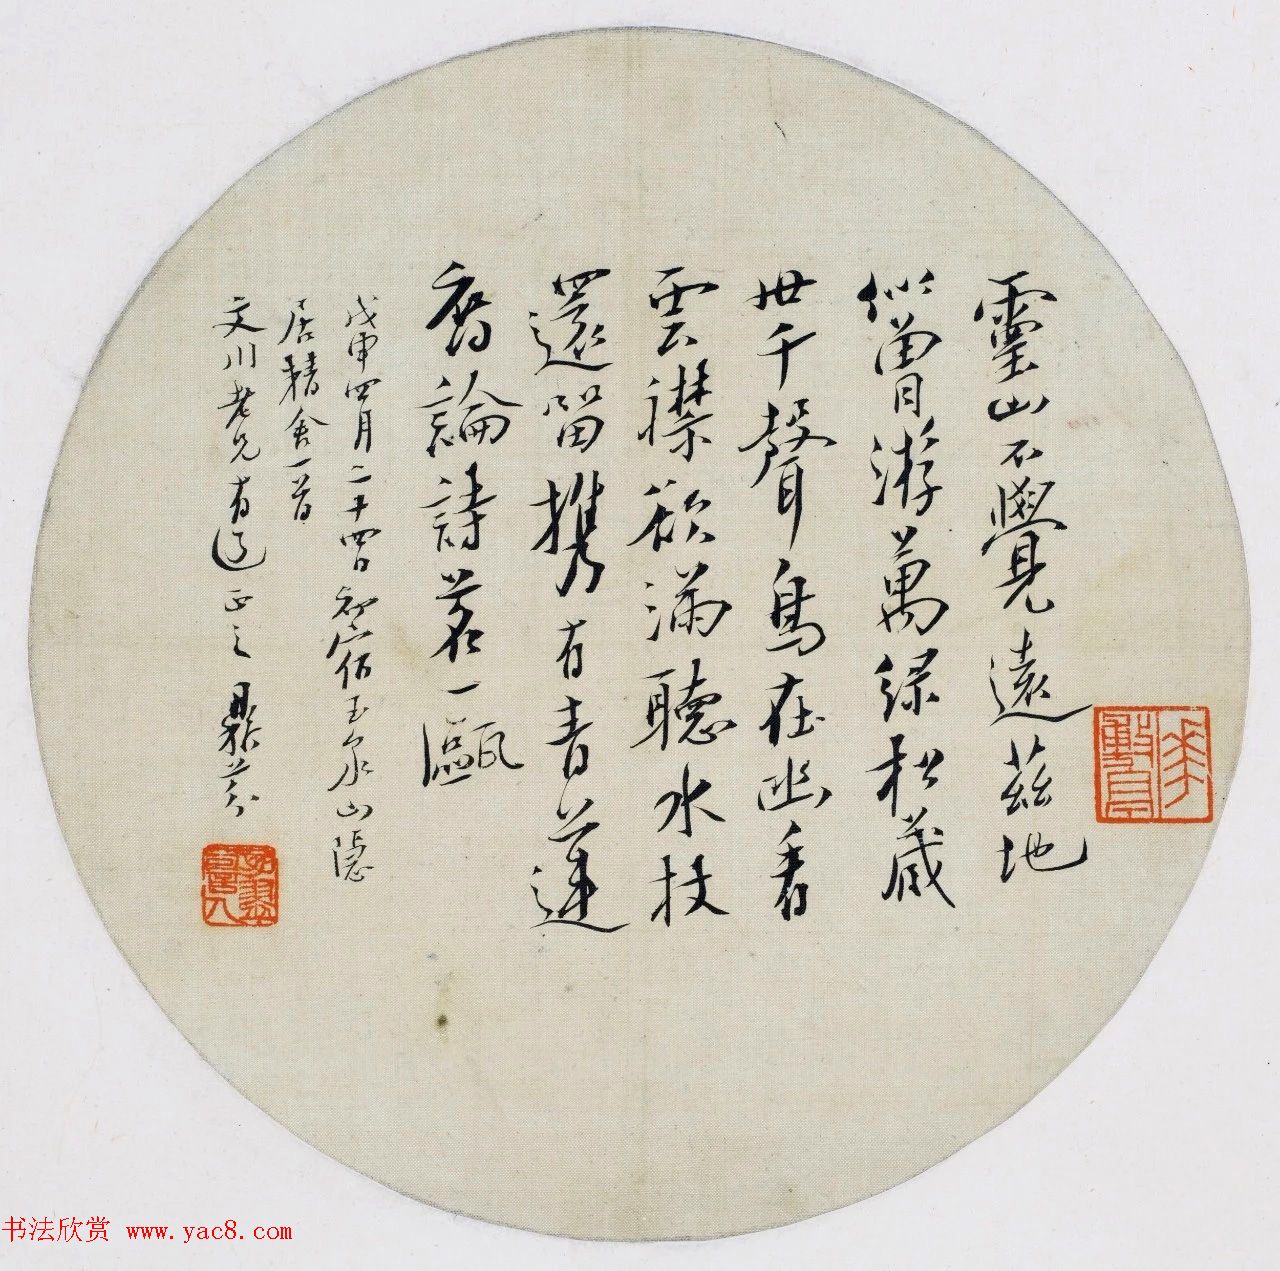 靈山不覺遠茲地
似曾游萬綠松藏
世千聲鳥在幽看
雲襟欲滿聽水杖
還留攜有青蓮
舊論詩茗一甌
戊申四月二十四日初宿玉泉山隱
居精舍一首
文川老兄有道正之鼎芬
书法欣赏 www.yac8.com